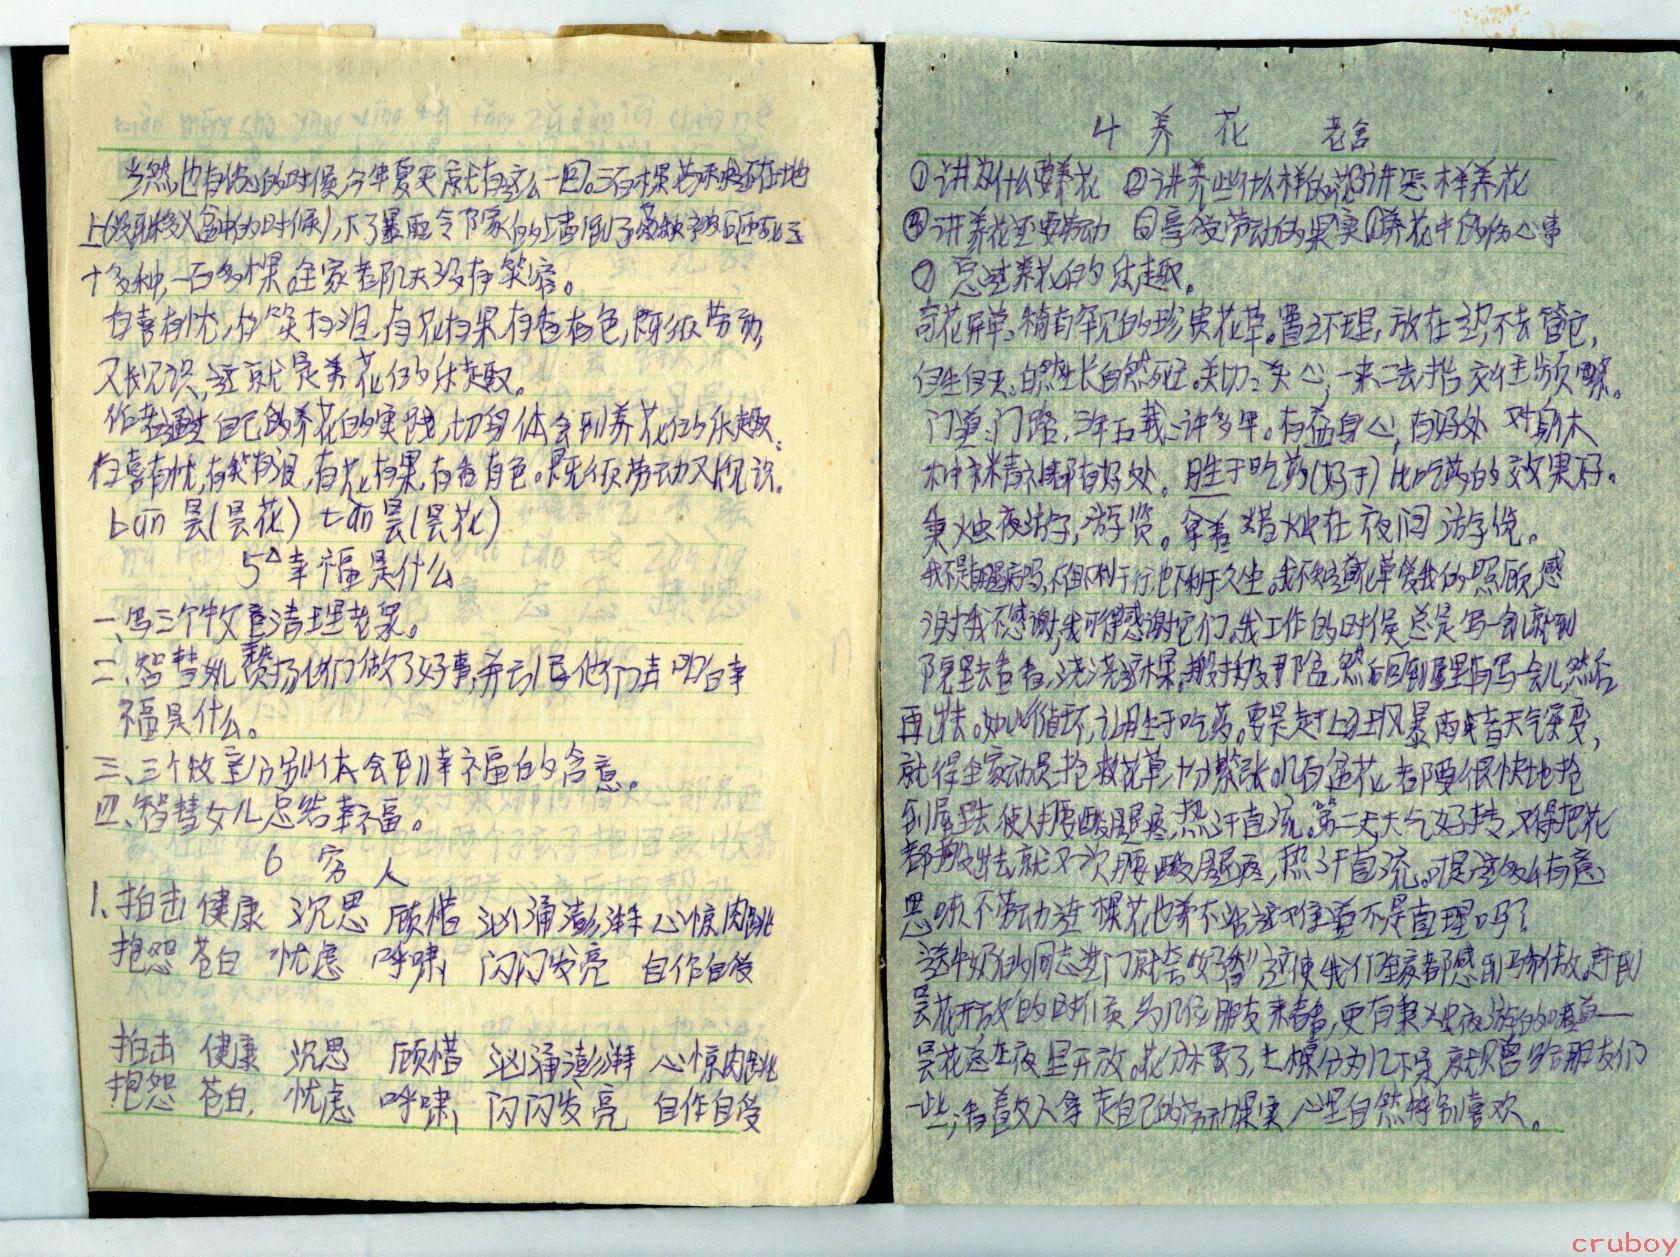 当然,也有伤心的时候,今年夏天就有这么一回。三百棵菊秧还在地
上(没到移入盆中的时候),下了暴雨,邻家的墙倒了,菊秧被砸死三
十多种,一百多棵。全家都几天没有笑容。
有喜有忧,有笑有泪,有花有果,有香有色,既须劳动,
又长见识,这就是养花的乐趣。
作者通过自己的养花的实践,切身体会到养花的乐趣:
有喜有忧,有笑有泪,有花有果,有香有色。既须劳动又长见识。
昙(昙花) tán 昙(昙花)
5△幸福是什么
一、写三个牧童清理老泉。
二、智慧女儿赞扬他们做了好事,并引导他们去明白幸
福是什么。
三、三个牧童分别体会到幸福的含意。
四、智慧女儿总结幸福。
6 穷人
1、拍击 健康 沉思 顾惜 汹涌澎湃 心惊肉跳
抱怨 苍白 忧虑 呼啸 闪闪发亮 自作自受
拍击 健康 沉思 顾惜 汹涌澎湃 心惊肉跳
抱怨 苍白 忧虑 呼啸 闪闪发亮 自作自受
4 养花 老舍
①讲为什么要养花 ②讲养些什么样的花 讲怎样养花
④讲养花还要劳动 ⑤享受劳动的果实 养花中的伤心事
⑦总述养花的乐趣。
奇花异草:稀有罕见的珍贵花草。置之不理,放在一边,不去管它,
任生任灭:自然生长自然死亡。关切:关心;一来二去指交往频繁。
门道:门路,三年五载:许多年。有益身心,有好处 对身体
和精神都有好处。胜于吃药(好于)比吃药的效果好。
秉烛夜游,游赏。拿着蜡烛在夜间游览。
我不是有腿病吗,不但不利于行,也不利于久坐。我不知道花草受我的照顾,感
谢我不感谢,我可得感谢它们,我工作的时候,总是写一会儿就到
院里去看看,浇浇这棵,搬搬那盆,然后回到屋里再写一会儿,然后
再出去。如此循环,让胜于吃药。要是赶上狂风暴雨或天气突变,
就得全家动员,抢救花草,十分紧张。几百盆花,都要很快地抢
到屋里去,使人腰酸腿疼,热汗直流。第二天,天气好转,又得把花
都搬出去,就又一次腰酸腿疼,热汗直流。可是,这多么有意
思呀!不劳动,连棵花也养不活,这难道不是真理吗?
送牛奶的同志进门就夸“好香”这使我们全家都感到骄傲。赶到
昙花开放的时候,约几位朋友来看看,更有秉烛夜游的味道——
昙花总在夜里开放。花分根了,一棵分为几棵,就赠给朋友们
一些;看着友人拿走自己的劳动果实,心里自然特别喜欢。
cruboy